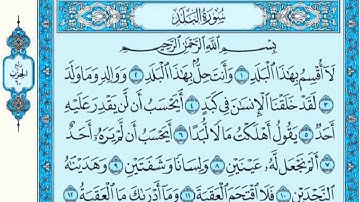 سُورَةُ الْبَلَدِ
بِسْمِ اللَّهِ الرَّحْمَٰنِ الرَّحِيمِ
لَا أُقْسِمُ بِهَٰذَا الْبَلَدِ ١ وَأَنتَ حِلٌّ بِهَٰذَا الْبَلَدِ ٢ وَوَالِدٍ وَمَا وَلَدَ
٣ لَقَدْ خَلَقْنَا الْإِنسَٰنَ فِي كَبَدٍ ٤ أَيَحْسَبُ أَن لَّن يَقْدِرَ عَلَيْهِ
أَحَدٌ ٥ يَقُولُ أَهْلَكْتُ مَالًا لُّبَدًا ٦ أَيَحْسَبُ أَن لَّمْ يَرَهُۥ أَحَدٌ
٧ أَلَمْ نَجْعَل لَّهُۥ عَيْنَيْنِ ٨ وَلِسَانًا وَشَفَتَيْنِ ٩ وَهَدَيْنَٰهُ
النَّجْدَيْنِ ١٠ فَلَا اقْتَحَمَ الْعَقَبَةَ ١١ وَمَا أَدْرَىٰكَ مَا الْعَقَبَةُ ١٢
ربع
الحزب
٦٠